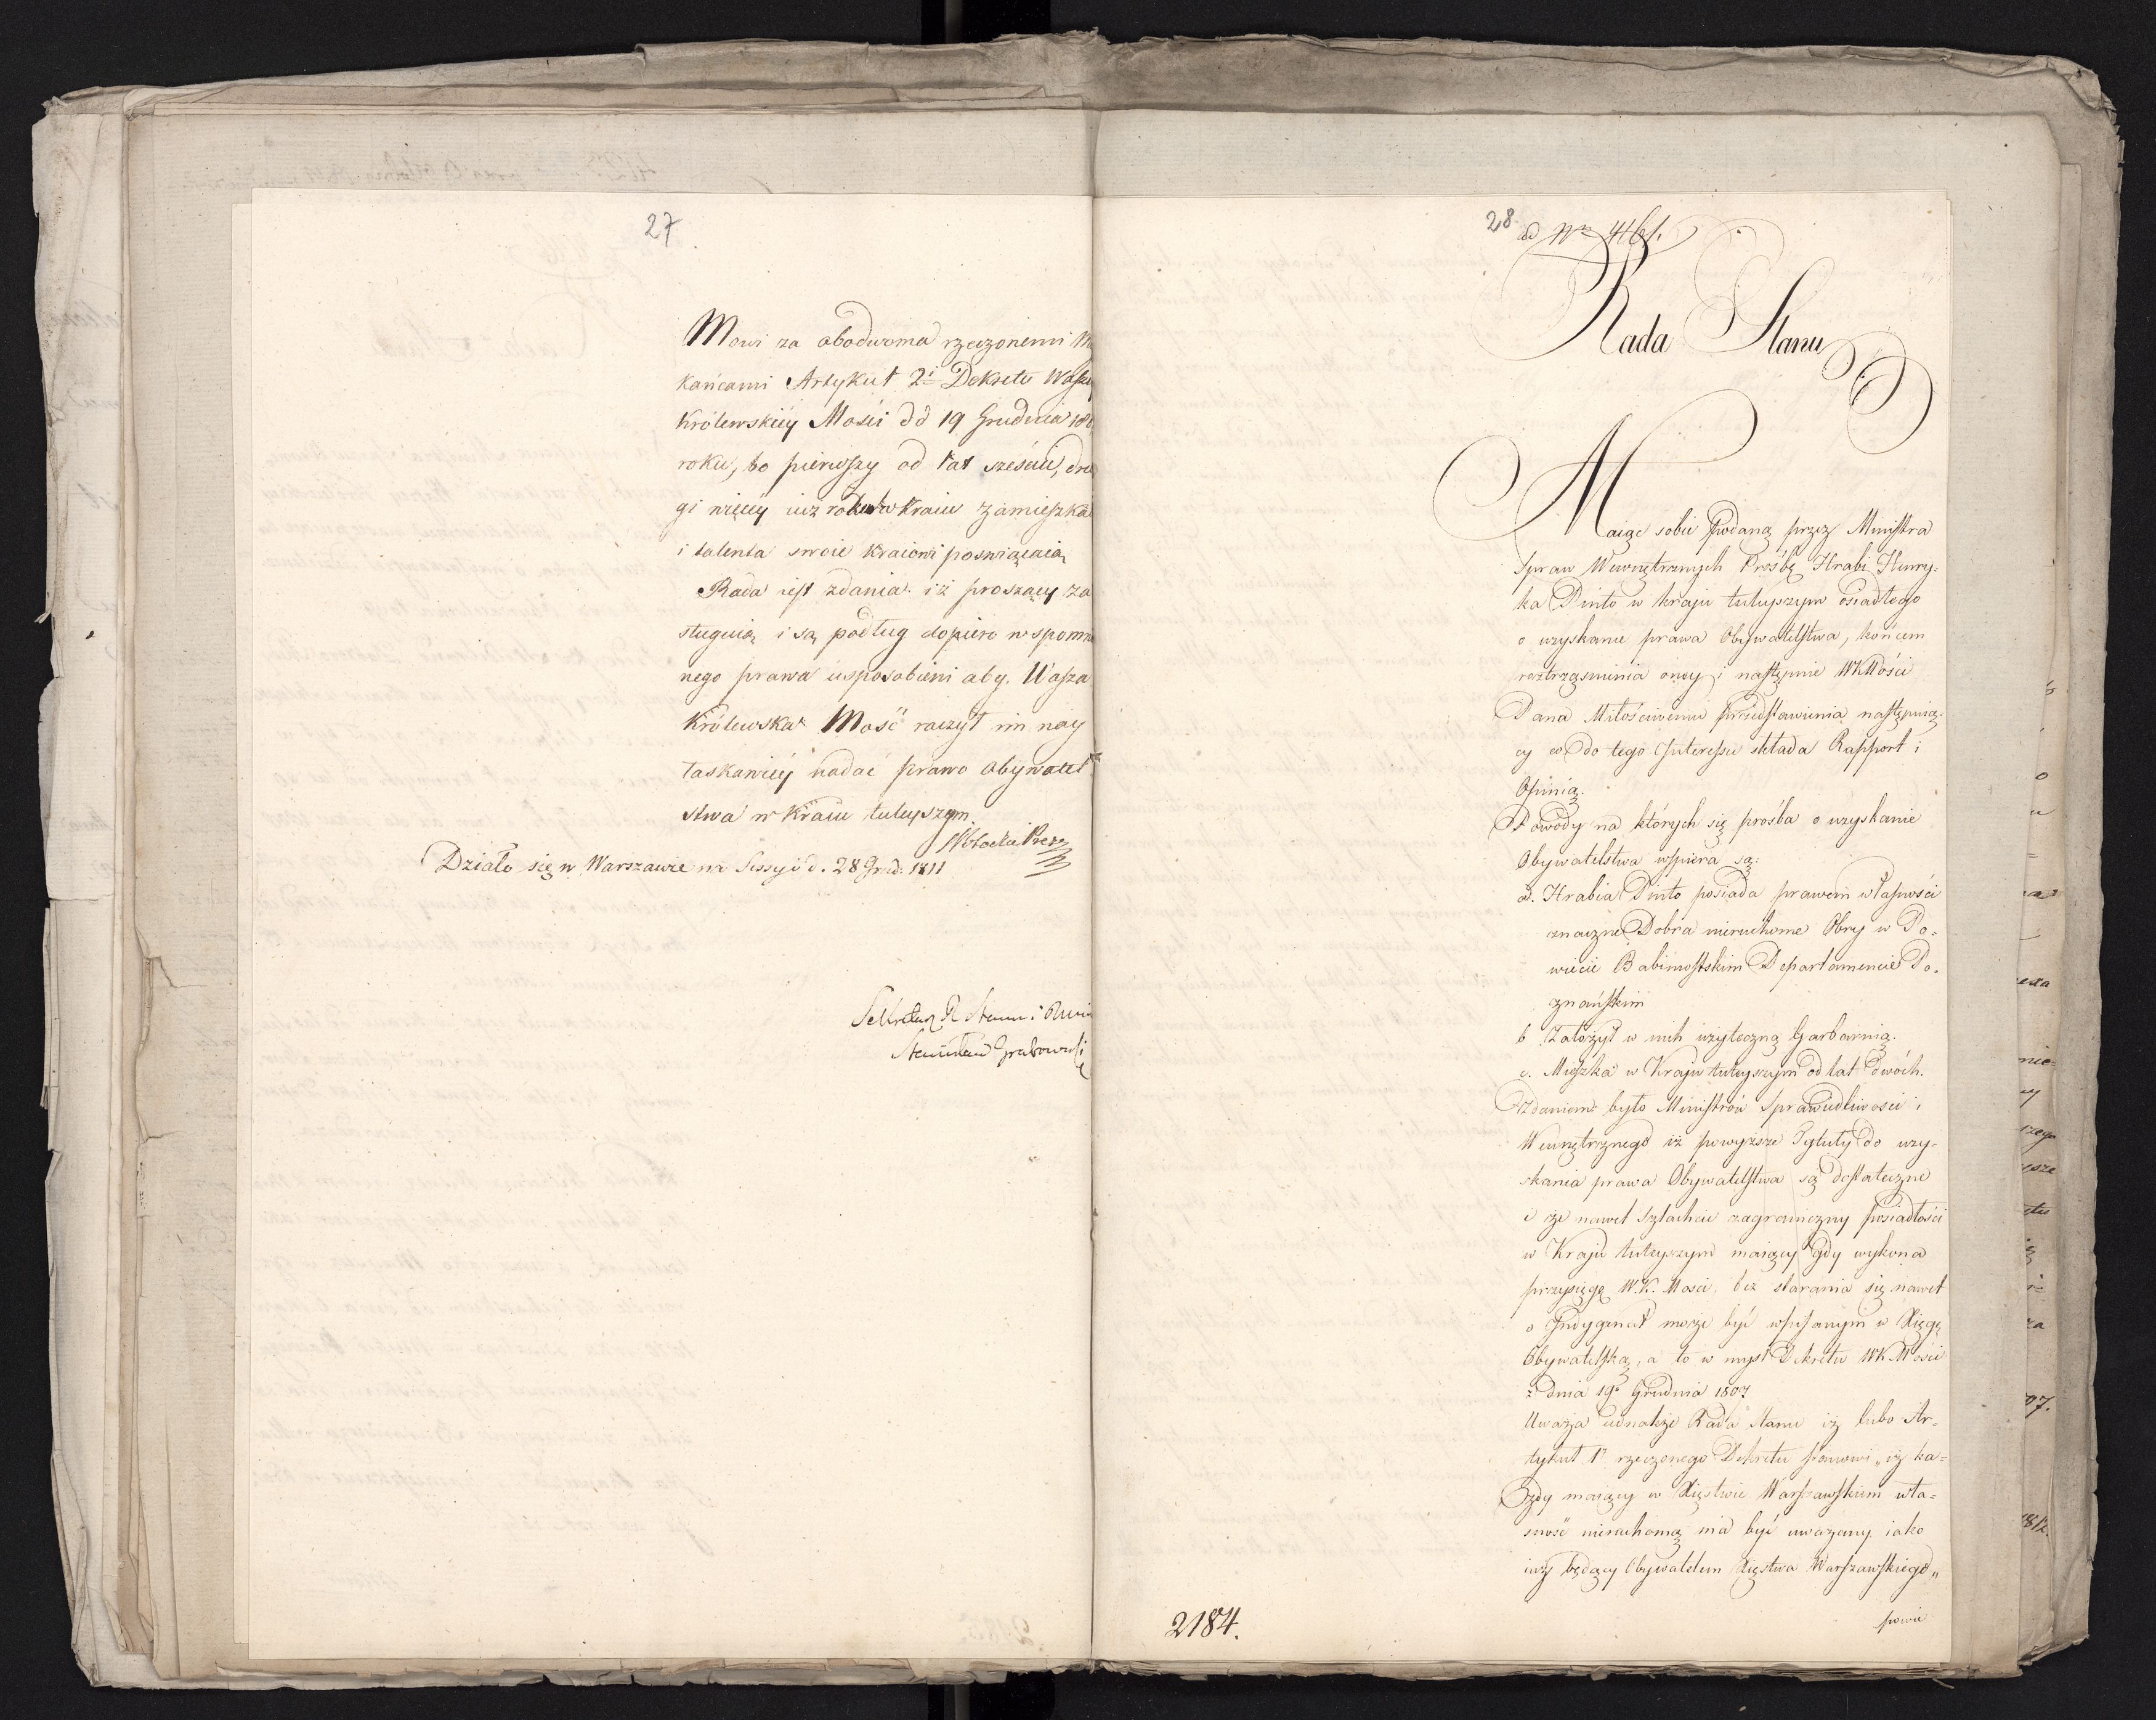 27
Mowi za obodwoma rzeczonemi M
kańcami Artykuł 2i Dekretu Waszey
Królewskiéy Mości dd 19 Grudnia 180
roku, bo pierwszy od lat sześciu, dru
gi więcéy iuż roku w Kraiu zamieszkał
i talenta swoie Kraiowi poswięcaią
Rada iest zdania iż proszący za
sługuią i są podług dopiero wspomn
nego prawa usposobieni aby Wasza
Królewska Mość raczył im nay
łaskawiéy nadać prawo obywatel
stwa w Kraiu tuteyszym.
Działo się w Warszawie na Sessyi d. 28 Grud: 1811
Sekretarz R Stanu i
Stanisław Grabowski
28.
ad Nro 4161.
Rada Stanu
Maiąc sobie podaną przez Ministra
Spraw Wewnętrznych Prośbę Hrabi Henry-
ka Pinto w kraju tuteyszym osiadłego
o uzyskanie prawa Obywatelstwa, końcem
roztrząśnienia onéy i następnie WKMości
Panu Miłościwemu przedstawienia następuią-
cy co do tego Interessu składa Rapport i
Opinią.
Powody na których się prośba o uzyskanie
Obywatelstwa wspiera są:
a. Hrabia Pinto posiada prawem własności
znaczne Dobra nieruchome Obry w Po-
wiecie Babimostskim Departamencie Po-
znańskim
b Założył w nich użyteczną Garbarnią.
c. Mieszka w Kraju tuteyszym od lat dwóch.
Zdaniem było Ministrów Sprawiedliwości i
Wewnętrznego iż powyższe Tytuły do uzy-
skania prawa Obywatelstwa są dostateczne
i że nawet Szlachcic zagraniczny posiadłości
w Kraju tuteyszym maiący gdy wykona
przysięgę W.K. Mości, bez starania się nawet
o Indygenat może być wpisanym w Xięgę
Obywatelską, a to w myśl Dekretu WKMości
z dnia 19o Grudnia 1807
Uważa iednakże Rada Stanu iż lubo Ar-
tykuł 1y rzeczonego Dekretu stanowi „iż ka-
żdy maiący w Xięstwie Warszawskiem wła-
sność nieruchomą ma być uważany iako
iuż będący Obywatelem Xięstwa Warszawskiego„
powie
2184.